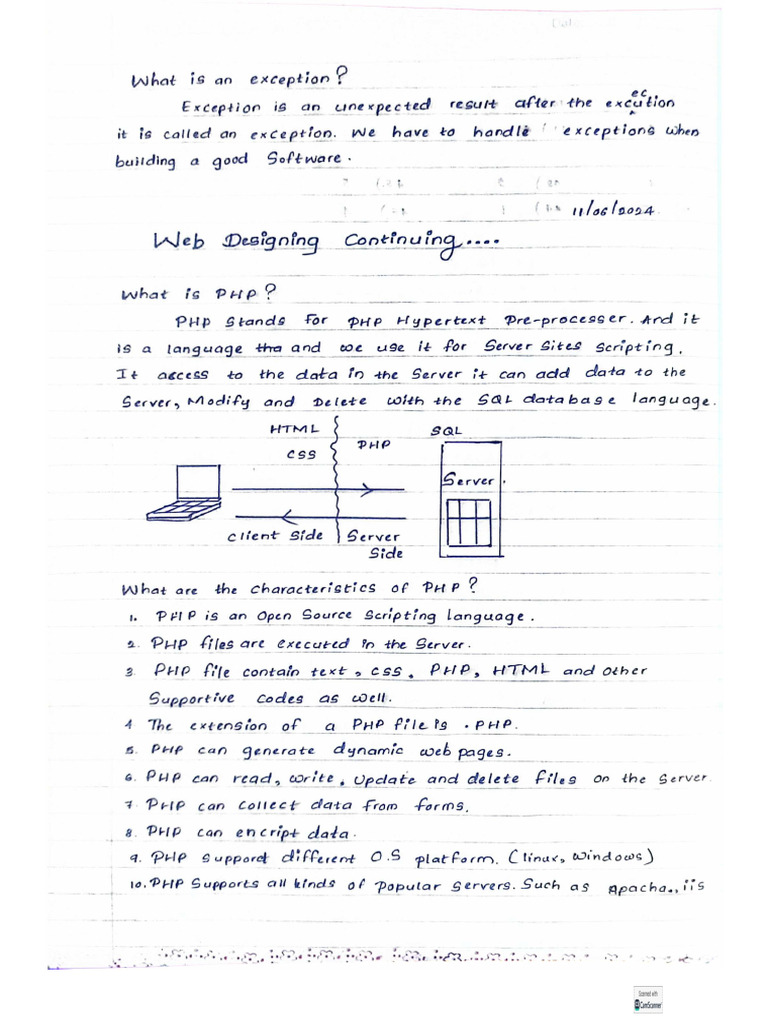 What is an exception?
Exception is an unexpected result after the excution
ec
it is called an exception. We have to handle exceptions when
building a good Software.
11/06/2024
Web Designing Continuing....
What is PHP?
PHP stands for PHP Hypertext Pre-processer. And it
is a language tha and we use it for Server Sites scripting.
It access to the data in the Server it can add data to the
Server, Modify and Delete with the SQL database language.
HTML
SQL
CSS
PHP
Server
Client Side
Server
Side
What are the characteristics of PHP?
1. PHP is an Open Source Scripting language.
2. PHP files are executed in the Server.
3 PHP file contain text, CSS, PHP, HTML and other
Supportive codes as well.
4 The extension of a PHP file is .PHP.
5. PHP can generate dynamic web pages.
6. PHP can read, write, Update and delete files on the Server.
7 PHP can collect data from forms.
8. PHP can encript data.
9. PHP support different O.S platform. (linux, windows)
10. PHP Supports all kinds of Popular Servers. Such as Apacha., iis
Scanned with
CS CamScanner